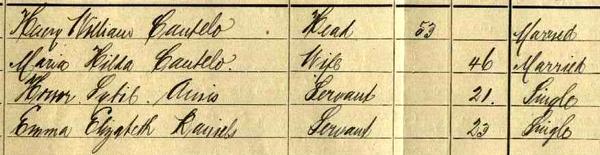 Harry William Cantelo Head 53 Married
Maria Hilda Cantelo. Wife 46 Married
Honor Sybil Servant 21. Single
Emma Elizabeth Daniels Servant 23 Single